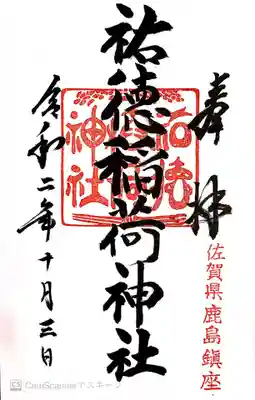 奉拝
佐賀県鹿島鎮座
祐徳稲荷神社
祐徳稲荷神社
令和二年十月三日
CamScannerでスキャン